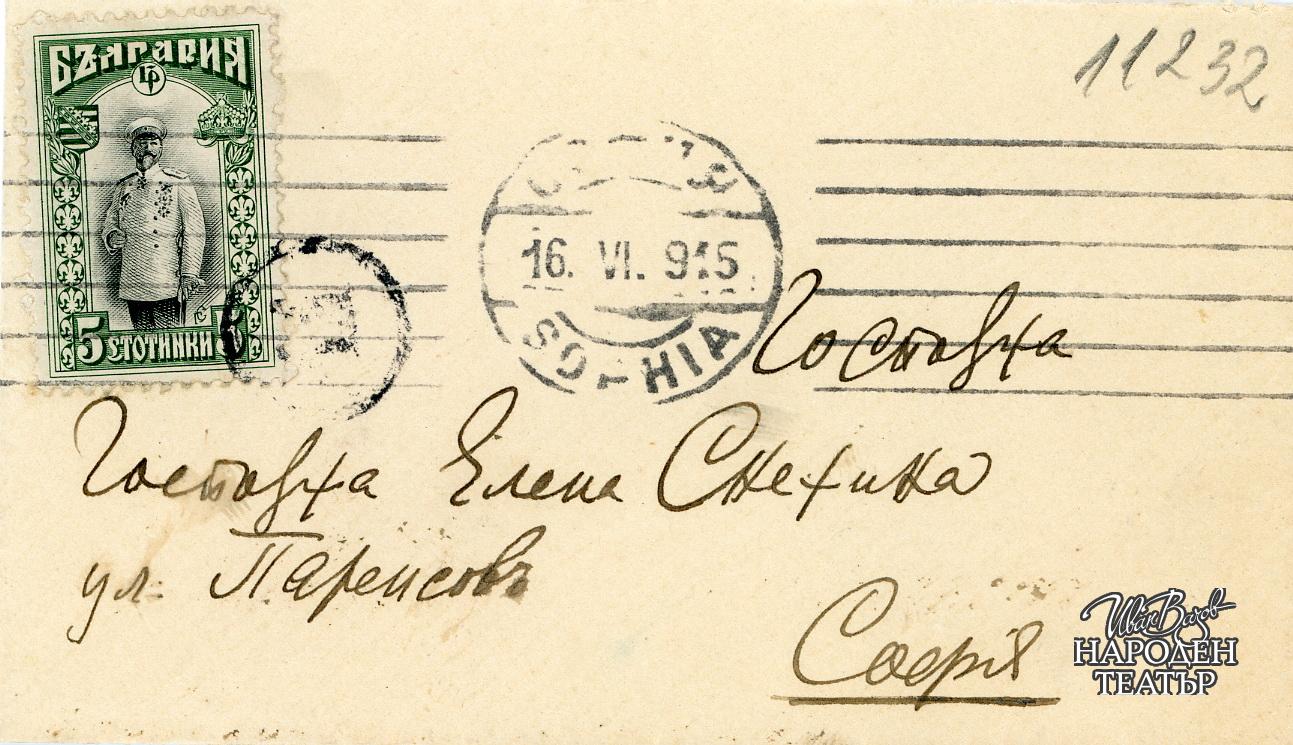 БЪЛГАРИЯ
5 СТОТИНКИ 5
11232
16. VI. 915
SOPHIA
Госпожа
Госпожа Елена Снежина
ул. Паренсовъ
Софія
Иван Вазов
НАРОДЕН
ТЕАТЪР